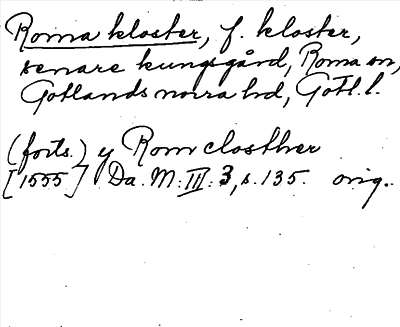 Roma kloster, f. kloster,
senare kungsgård, Roma sn,
Gotlands norra hd, Gotl. l.
(forts.) y Romclosther
[1555] Da. M: III: 3, s. 135. orig.